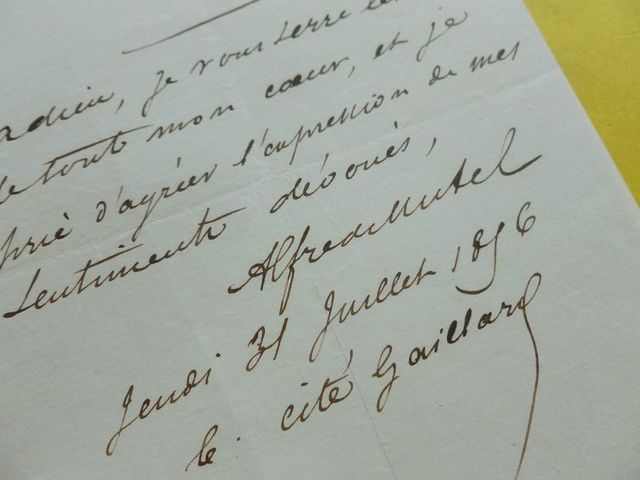 adieu, je vous serre
de tout mon cœur, et je
prié d'agréer l'expression de mes
sentiments dévoués,
Alfred Mutel
Jeudi 31 Juillet 1856
6. cité Gaillard